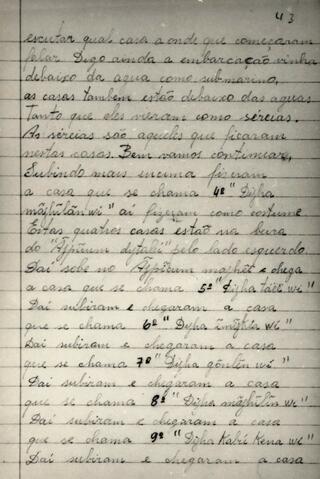 43
escutar qual casa aonde que começaram
falar Digo ainda a embarcação vinha
debaixo da agua como submarino,
as casas tambem estão debaixo das aguas
Tanto que eles vieram como sereias.
As sereias são aqueles que ficaram
nestas casas. Bem vamos continuar,
Subindo mais encima fizeram
a casa que se chama 4º "Diʝha
aí fizeram como costume
Estas quatros casas estão na beira
do pelo lado esquerdo
Daí sobe no e chega
a casa que se chama 5º
Daí subiram e chegaram a casa
que se chama 6º
Daí subiram e chegaram a casa
que se chama 7º
Daí subiram e chegaram a casa
que se chama 8º
Daí subiram e chegaram a casa
que se chama 9º
Daí subiram e chegaram a casa